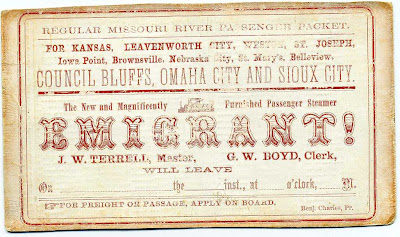 REGULAR MISSOURI RIVER PA SENGER PACKET.
FOR KANSAS, LEAVENWORTH CITY, WESTON, ST. JOSEPH,
Iowa Point, Brownsville, Nebraska City, St. Mary's, Bellevew,
COUNCIL BLUFFS, OMAHA CITY AND SIOUX CITY.
The New and Magnificently Furnished Passenger Steamer
EMIGRANT!
J. W. TERRELL, Master, G. W. BOYD, Clerk,
WILL LEAVE
On the inst., at o'clock, M.
FOR FREIGHT OR PASSAGE, APPLY ON BOARD. Benj. Charles, Pr.